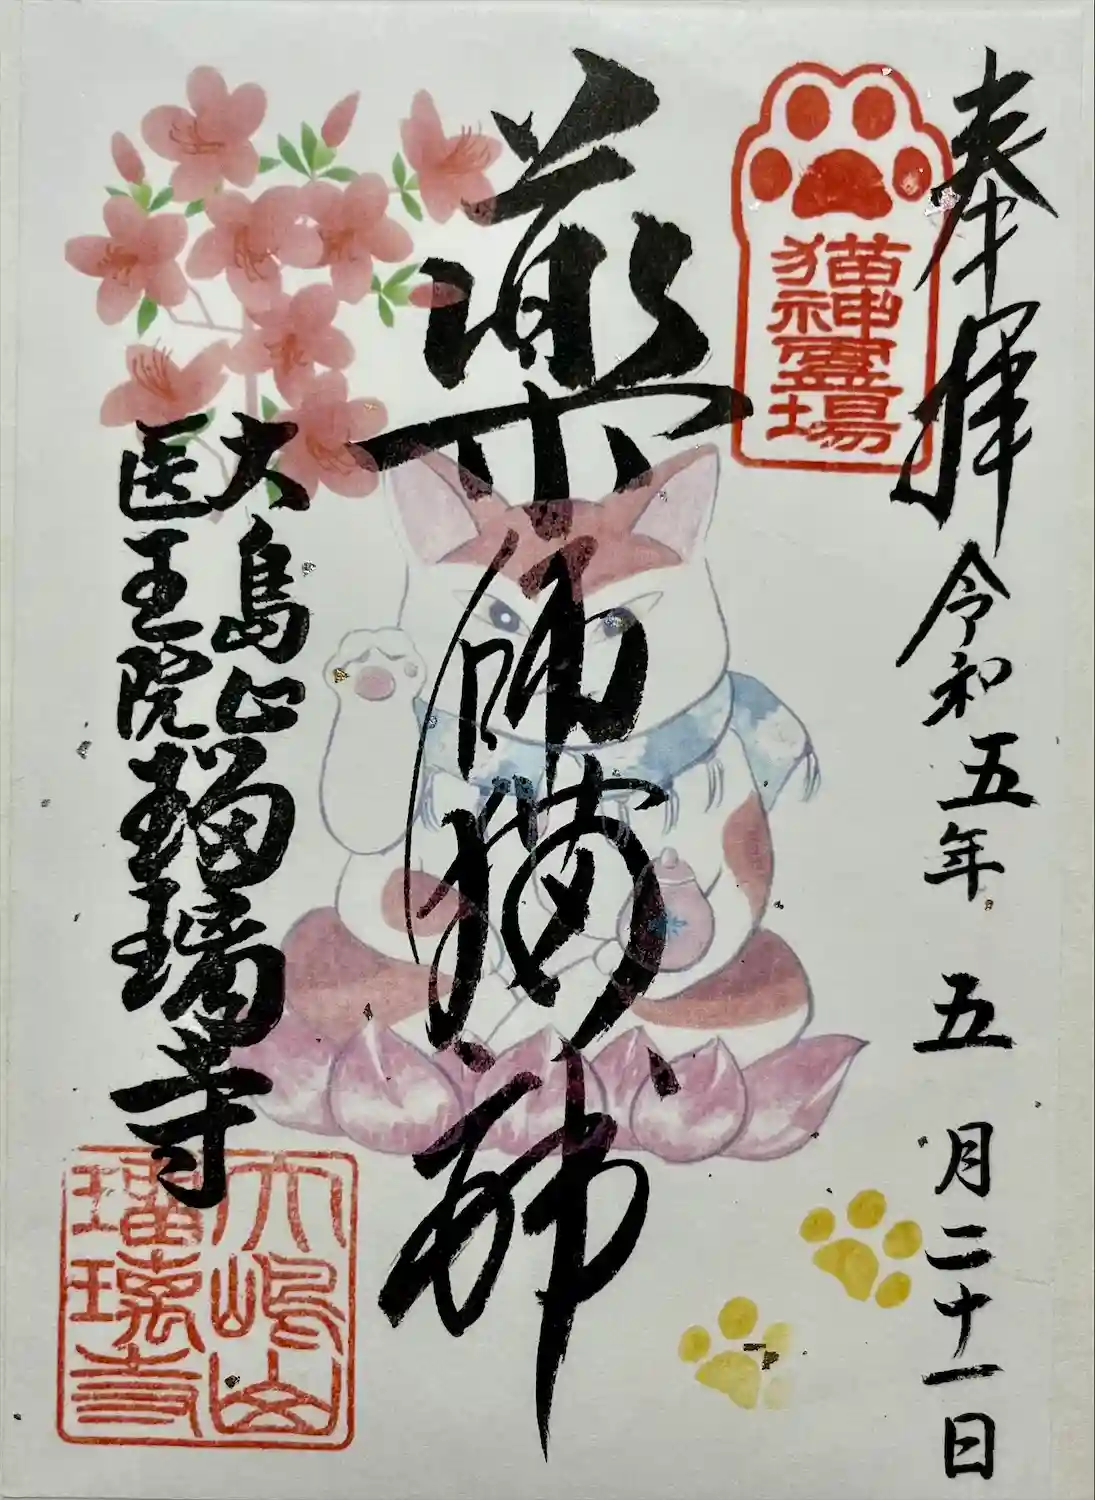 奉拝
令和五年 五月二十一日
猫神霊場
薬師猫神
大島山
医王院瑠璃寺
大嶋山
瑠璃寺